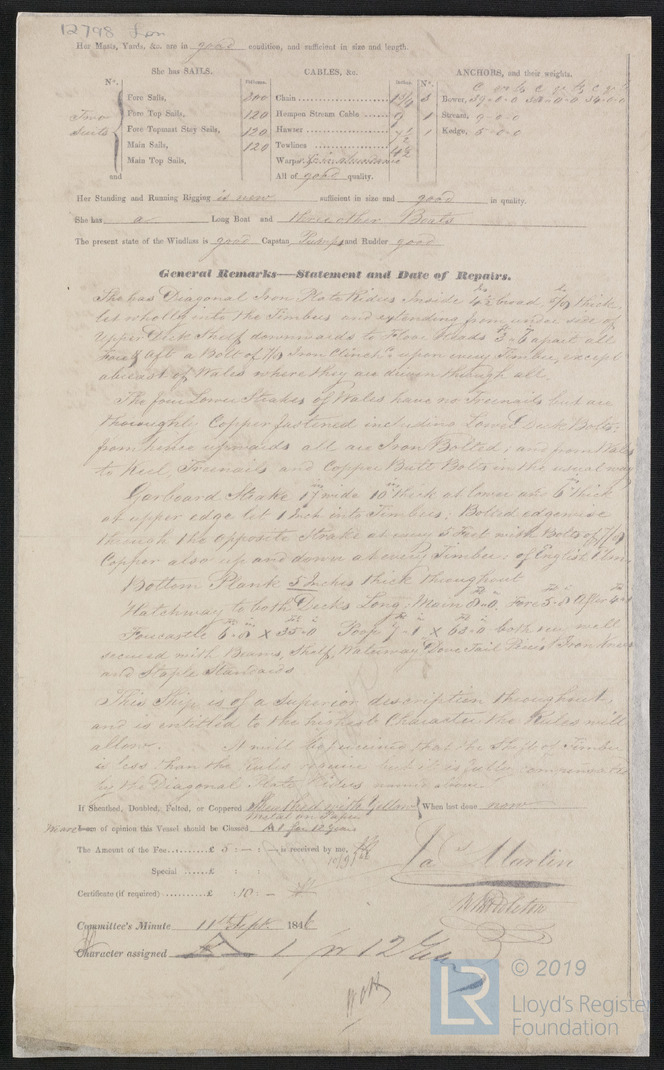 12798 Lon
Her Masts, Yards, &c. are in good condition, and sufficient in size and length.
She has SAILS. CABLES, &c. ANCHORS, and their weights.
N°. Fathoms. Inches. N°.
Fore Sails, 300 Chain 3 Bower,
Two Fore Top Sails, 120 Hempen Stream Cable 9 1 Stream, 9-0-0
Suits Fore Topmast Stay Sails, 120 Hawser 1 Kedge, 5-0-0
Main Sails, 120 Towlines 4½
Main Top Sails, Warps in abundance
and All of good quality.
Her Standing and Running Rigging is new sufficient in size and good in quality.
She has a Long Boat and three other Boats
The present state of the Windlass is good Capstan Pumps and Rudder good
General Remarks—Statement and Date of Repairs.
She has Diagonal Iron Plate Riders Inside 4½ broad thick
let wholly into the Timbers and extending from under side of
Upper Deck Shelf downwards to Floor Heads 3-6 apart all
Fore & Aft a Bolt of Iron Clinch'd upon every Timber, except
abreast of Wales where they are driven through all.
The four Lower Strakes of Wales have no Treenails but are
thoroughly Copper fastened including Lower Deck Bolts,
from hence upwards all are Iron Bolted, and from Wales
to Keel Treenails and Copper Butt Bolts in the usual way
Garboard Strake 17 wide 10 thick at lower and 6 thick
at upper edge let 1 Inch into Timbers. Bolted edgewise
through the opposite Strake at every 5 Feet with Bolts of
Copper also up and down at every Timber, of English Elm,
Bottom Plank 5 Inches thick throughout
Hatchway to both Decks Long, Main 8-0, Fore 5- After 4-
Forecastle 6-8 x 35-0 Poop 7-1 x 63-0 both very well
secured with Beams, Shelf, Waterway Dove Tail Iron Knees
and Staple Standards
This Ship is of a Superior description throughout,
and is entitled to the highest Character the Rules will
allow. It will be perceived that the Shift of Timber
is less than the Rules require but it is fully compensated
by the Diagonal Plate Riders named above.
If Sheathed, Doubled, Felted, or Coppered Sheathed with Yellow When last done now
Metal on Paper
am of opinion this Vessel should be Classed A1 for 12 Years
The Amount of the Fee £ 5 : — : — is received by me,
Special £ : :
Certificate (if required) £ : 10 : —
Jas Martin
Committee's Minute 11th Sept. 1846
Character assigned A 1 for 12 Years
© 2019
LR
Lloyd's Register
Foundation